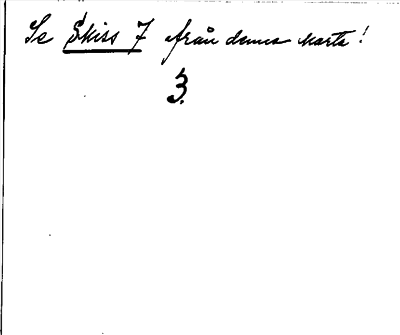 Se Skiss 7 från denna karta!
3.